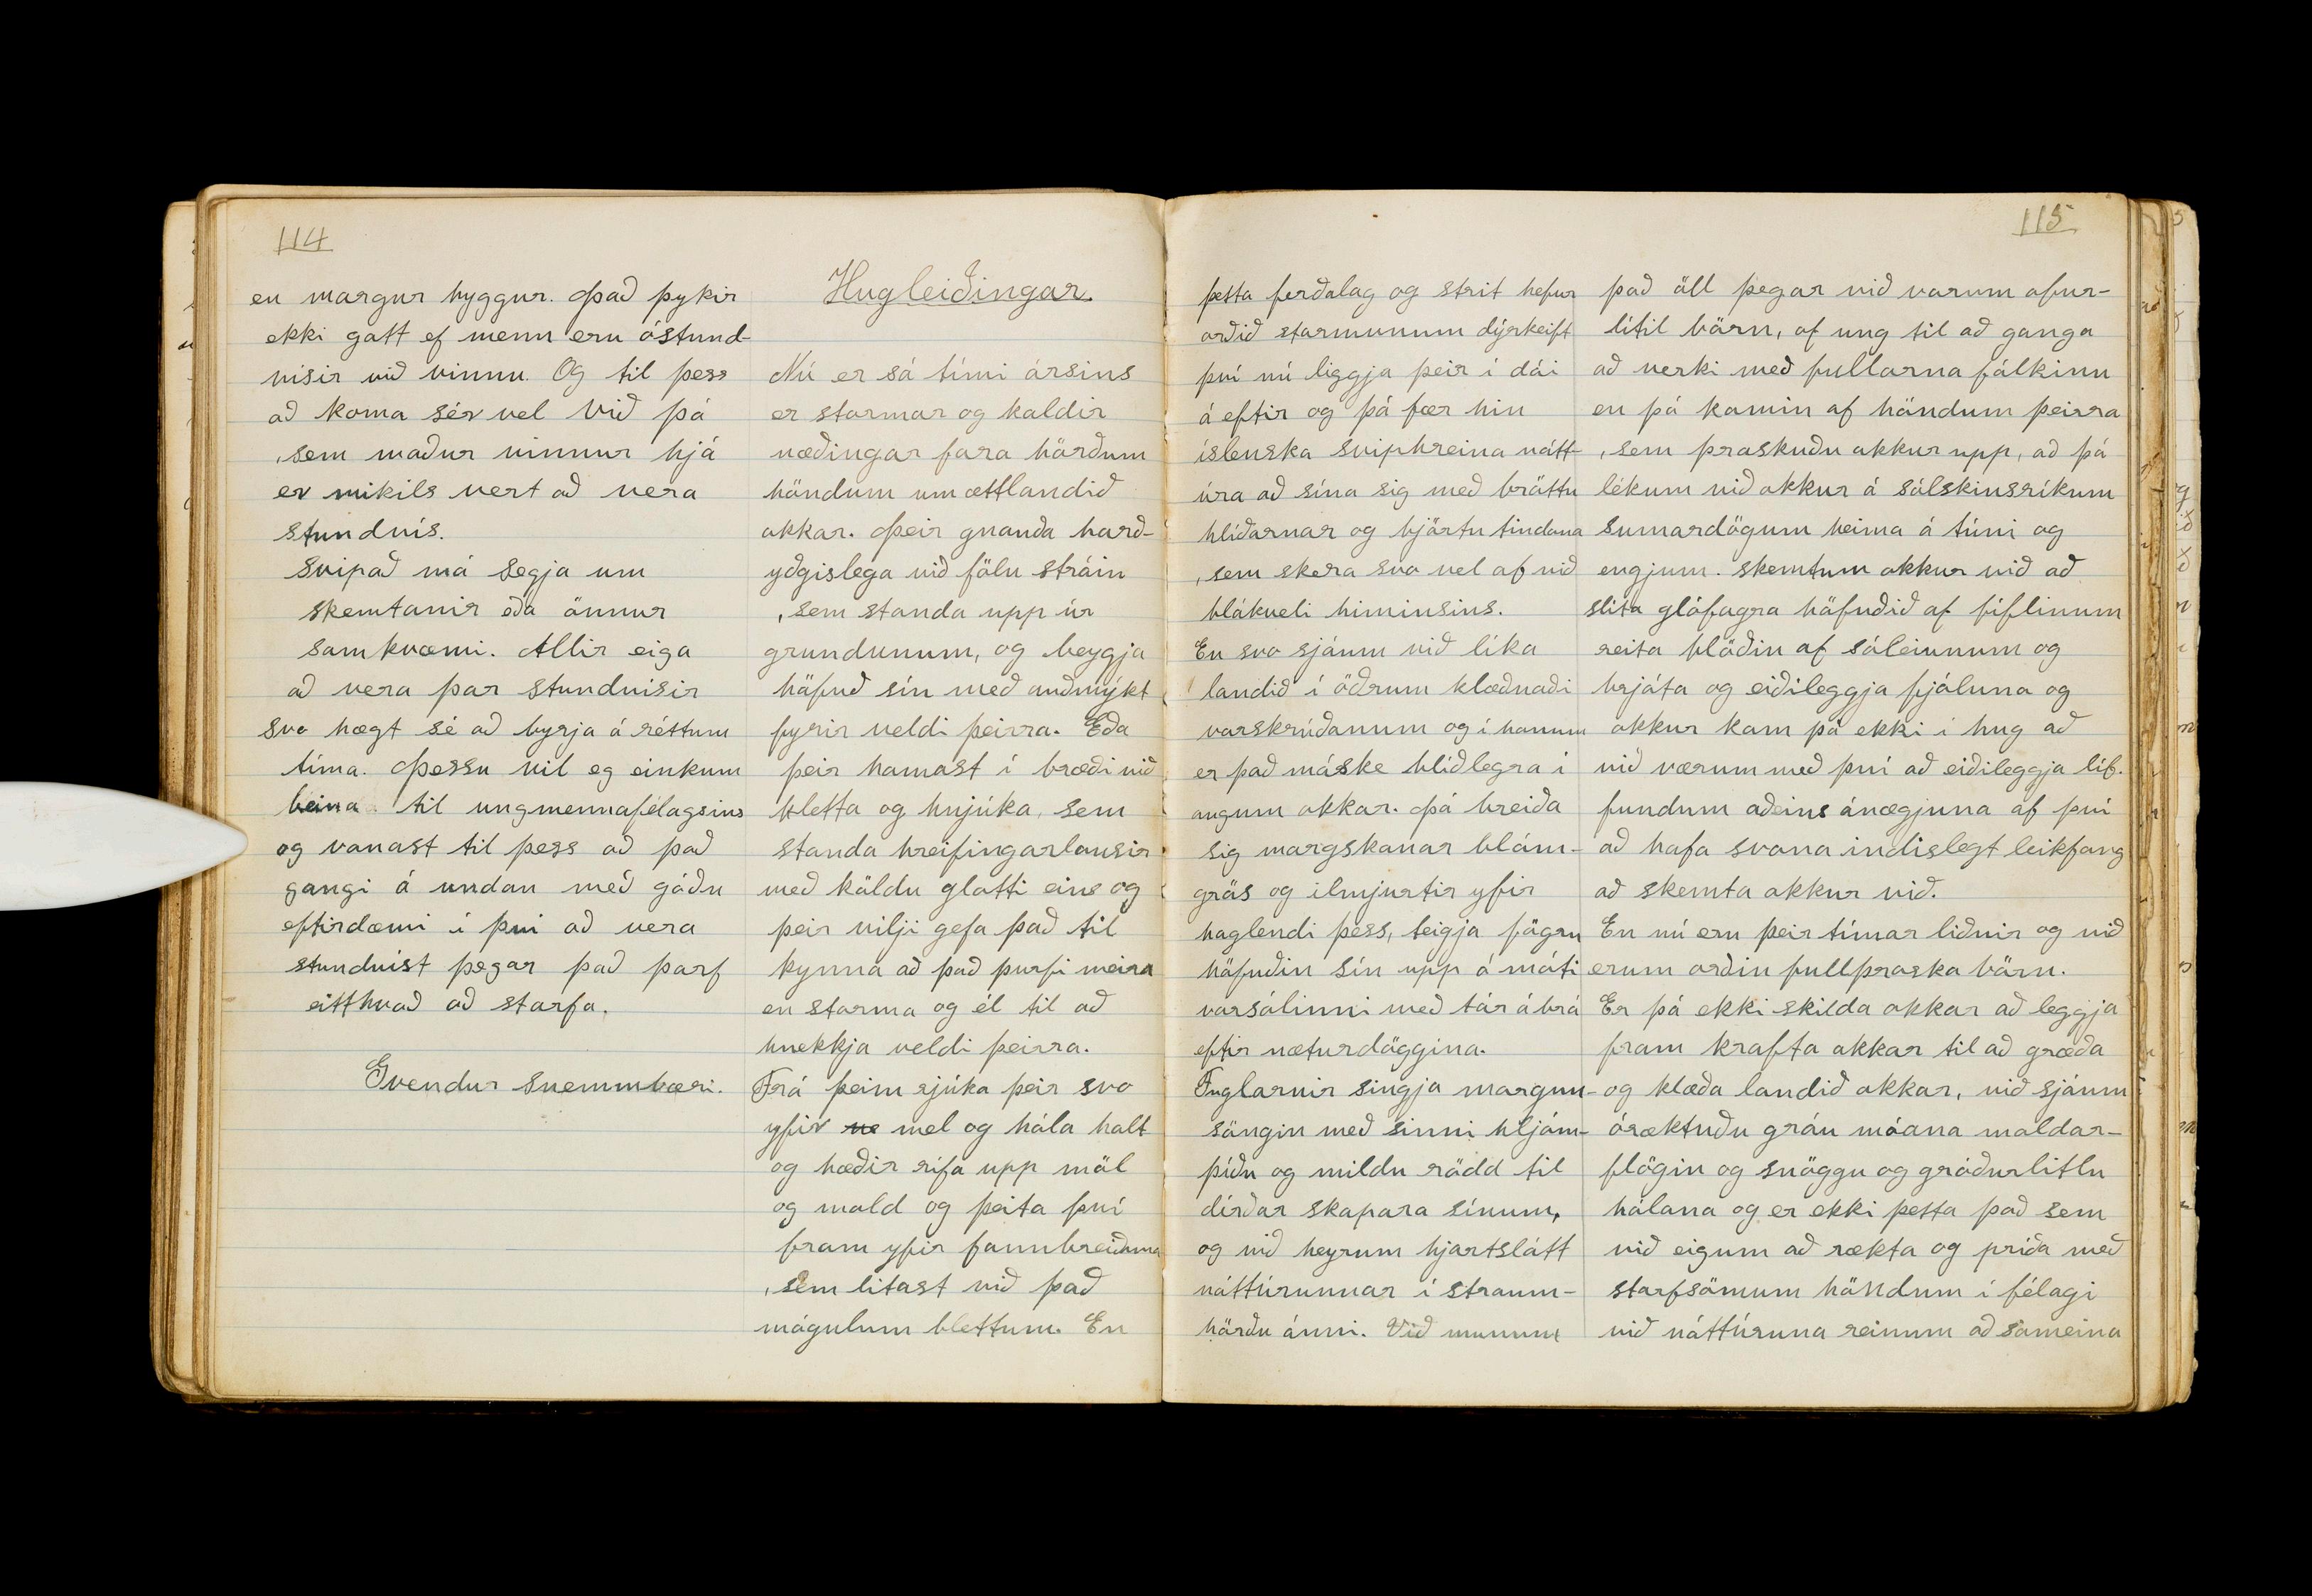 114
en margur hyggur. Það þykir
ekki gott ef menn eru óstund-
vísir við vinnu. Og til þess
að koma sér vel við þá
sem maður vinnur hjá
er mikils vert að vera
stundvís.
Svipað má segja um
skemtanir eða önnur
samkvæmi. Allir eiga
að vera þar stundvísir
svo hægt sé að byrja á réttum
tíma. Þessu vil eg einkum
beina til ungmennafélagsins
og vonast til þess að það
gangi á undan með góðu
eftirdæmi í því að vera
stundvíst þegar það þarf
eitthvað að starfa.
Gvendur Snemmbæri.
Hugleiðingar.
Nú er sá tími ársins
er stormar og kaldir
næðingar fara hörðum
höndum um ættlandið
okkar. Þeir gnauða harð-
yðgislega við fölu stráin
, sem standa upp úr
grundunum, og beygja
höfuð sín með auðmýkt
fyrir veldi þeirra. Eða
þeir hamast í bræði við
kletta og hnjúka, sem
standa hreifingarlausir
með köldu glotti eins og
þeir vilji gefa það til
kynna að það þurfi meira
en storma og él til að
hnekkja veldi þeirra.
Frá þeim rjúka þeir svo
yfir me mel og hóla holt
og hæðir rífa upp möl
og mold og þeita því
fram yfir fannbreiðuna
, sem litast við það
mógulum blettum. En
115
þetta ferðalag og strit hefur
orðið stormunum dýrkeift
því nú liggja þeir í dái
á eftir og þá fær hin
íslenska sviphreina nátt-
úra að sína sig með bröttu
hlíðarnar og björtu tindana
, sem skera svo vel af við
blákveli himinsins.
En svo sjáum við líka
landið í öðrum klæðnaði
vorskrúðanum og í honum
er það máske blíðlegra í
augum okkar. Þá breiða
sig margskonar blóm-
grös og ilmjurtir yfir
haglendi þess, teigja fögru
höfuðin sín upp á móti
vorsólinni með tár á brá
eftir næturdöggina.
Fuglarnir singja morgun-
sönginn með sinni hljóm-
þíðu og mildu rödd til
dírðar skapara sínum,
og við heyrum hjartslátt
náttúrunnar í straum-
hörðu ánni. Við munum
það öll þegar við vorum ofur-
lítil börn, of ung til að ganga
að verki með fullorna fólkinu
en þó komin af höndum þeirra
, sem þroskuðu okkur upp, að þá
lékum við okkur á sólskinsríkum
sumardögum heima á túni og
engjum. skemtum okkur við að
slíta glófagra höfuðið af fíflinum
reita blöðin af sóleiunum og
brjóta og eiðileggja fjóluna og
okkur kom þá ekki í hug að
við værum með því að eiðileggja líf.
fundum aðeins ánægjuna af því
að hafa svona indislegt leikfang
að skemta okkur við.
En nú eru þeir tímar liðnir og við
erum orðin fullþroska börn.
Er þá ekki skilda okkar að leggja
fram krafta okkar til að græða
og klæða landið okkar, við sjáum
óræktuðu gráu móana moldar-
flögin og snöggu og gróðurlitlu
hólana og er ekki þetta það sem
við eigum að rækta og príða með
starfsömum höndum í félagi
við náttúruna reinum að sameina